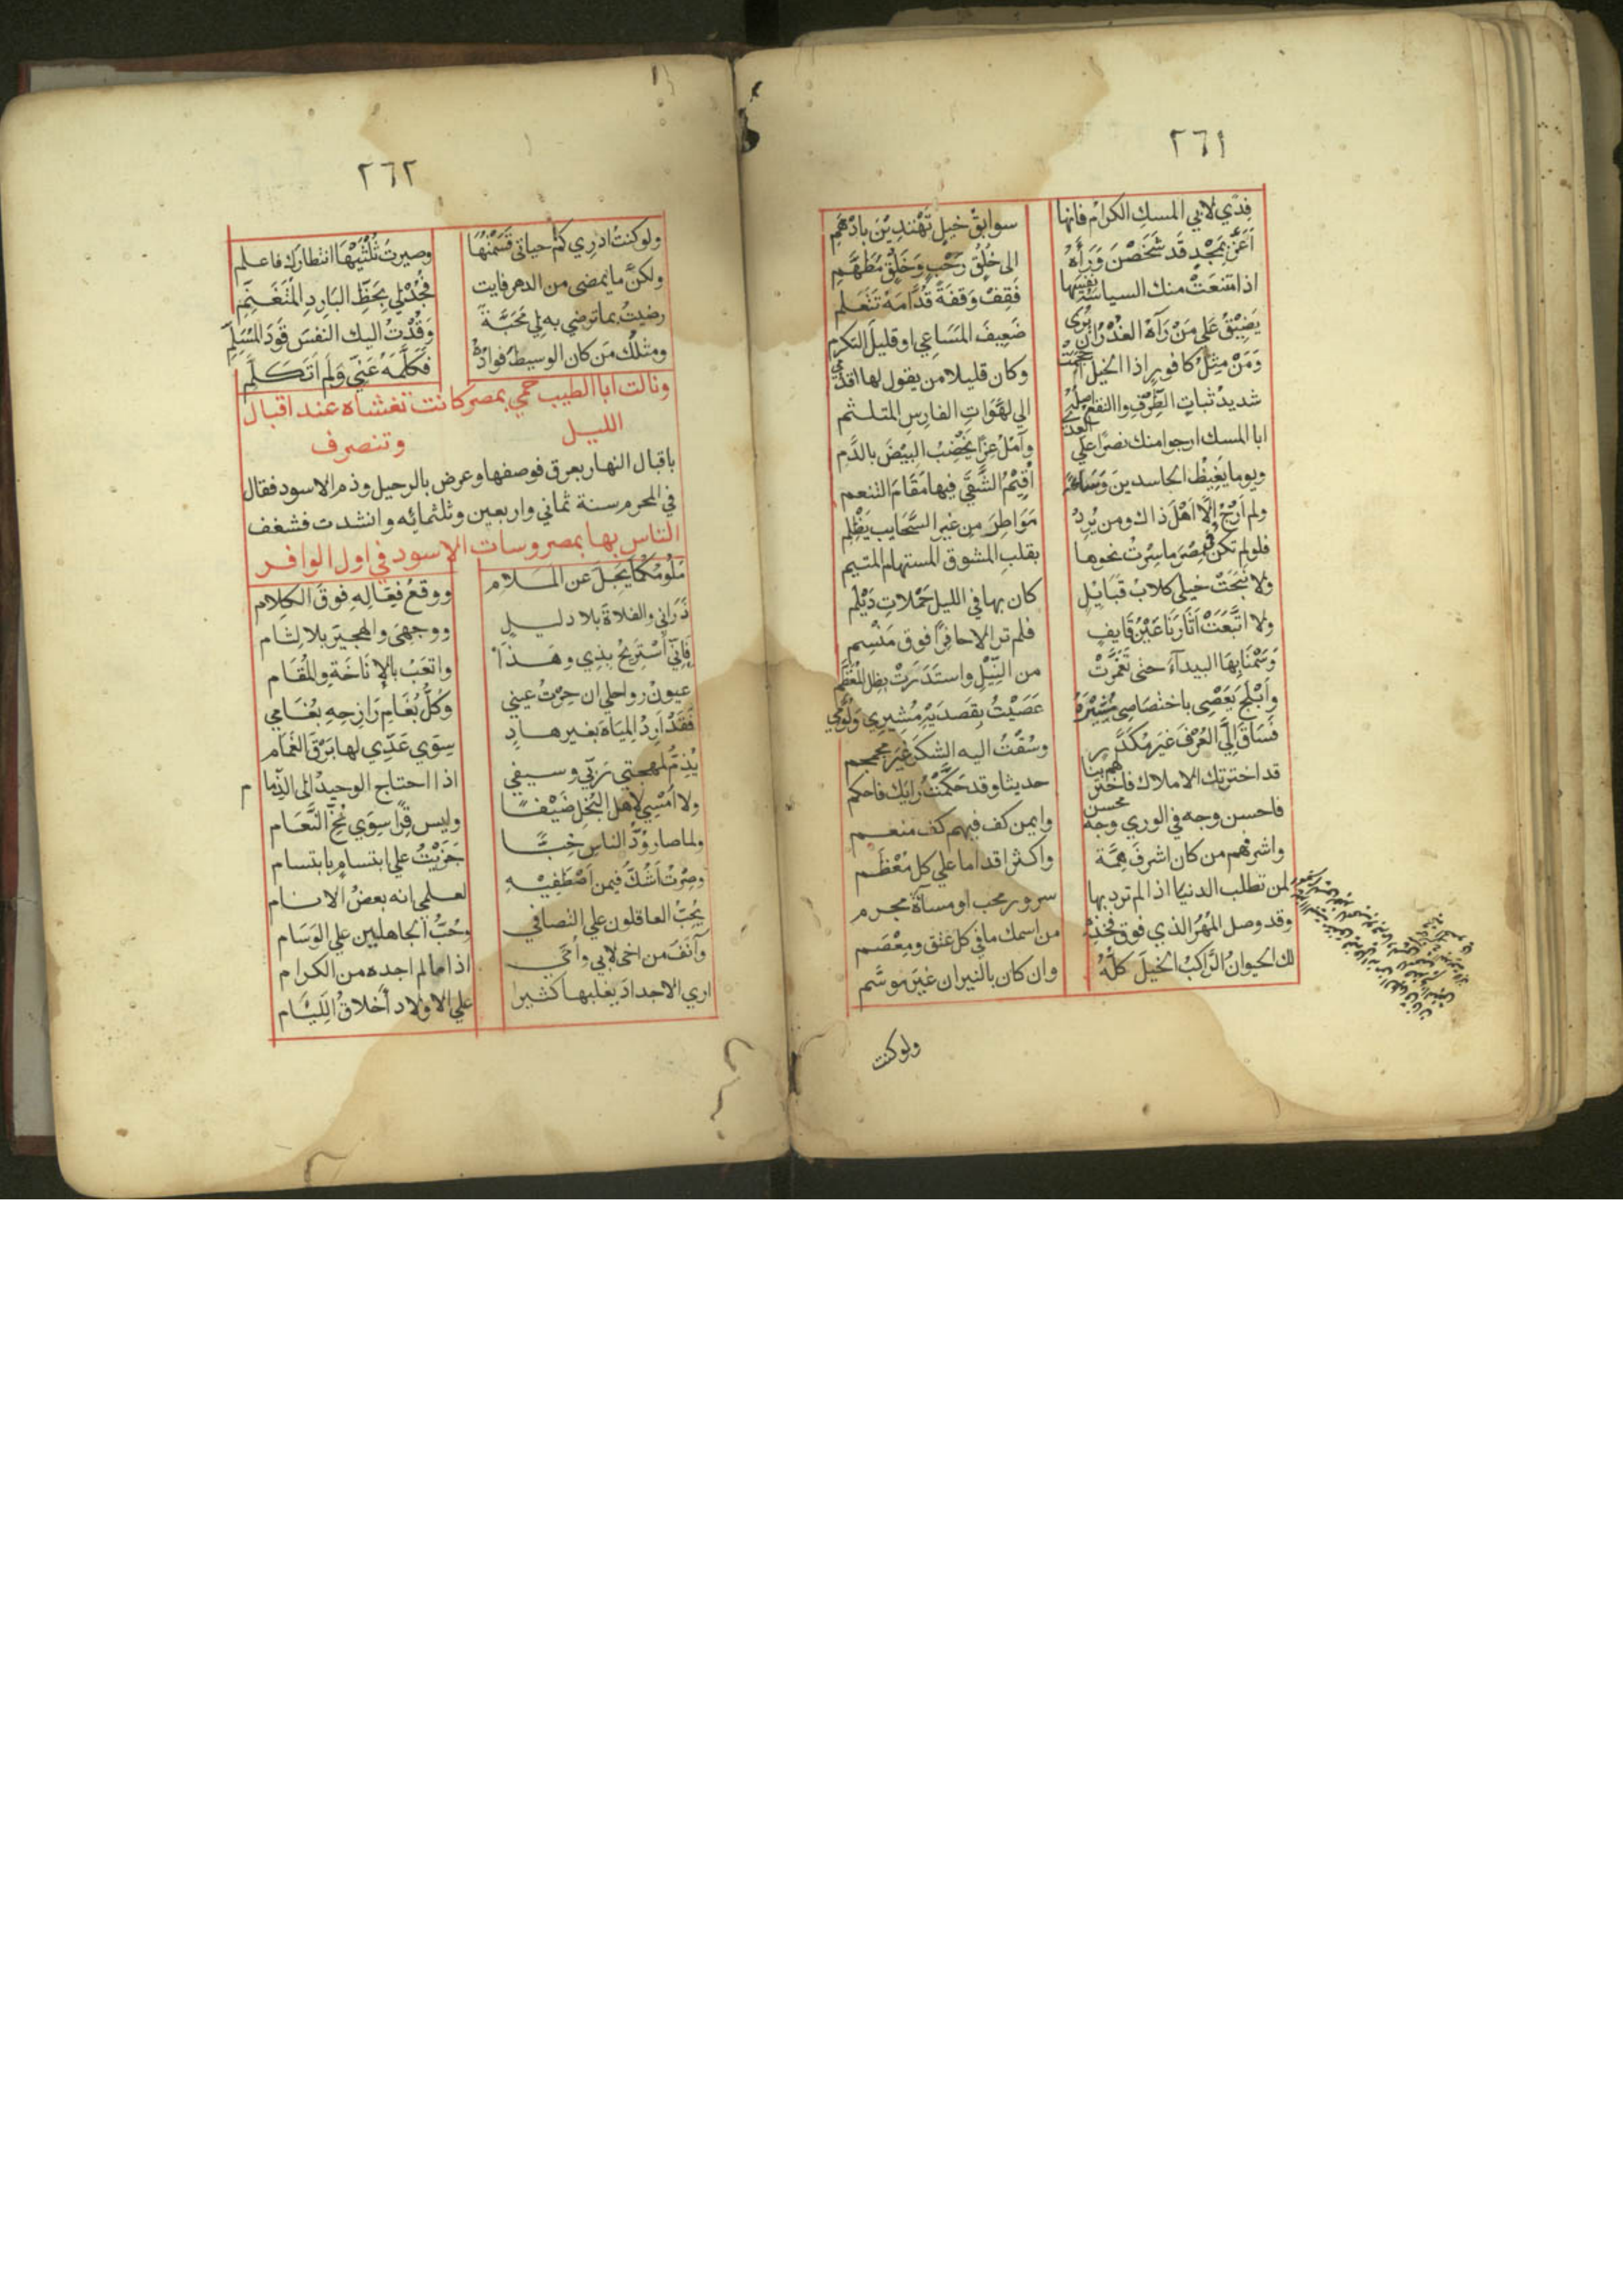 ٢٦١
فِدًي لابي المسكِ الكرامُ فانها سوابقُ خيلٍ تَهْتَدِيْنَ بادْهَمِ
اَغَرَّ بِمَجْدٍ قَد شَخَصْنَ وَرَأَهُ الى خُلُقٍ رَحْبٍ وَخَلْقٍ مُطَهَّمِ
اذا مَنَعَتْ منك السياسَةُ نفسَها فَقِفْ وَقفَةً قُدَّامَهُ تَتَعَلم
يَضِيْقُ عَلي مَنْ رَآهُ العُذْرُ ان يُرَى ضَعِيفَ المَسَاعِي او قليلَ التكرم
وَمَنْ مِثلُ كافورٍ اذا الخيل احجمت وكان قليلا من يقول لها اقدمي
شديدُ ثباتِ الطِّرْفِ والنقعُ واصلٌ الي لَهَوَاتِ الفارِسِ المتلثم
ابا المسك ارجوا منك نصرًا علي العدى وآمُلُ عِزًّا يَخْضِبُ البِيْضَ بالدَّمِ
ويوما يَغِيظُ الحاسدينَ وحالة اُقِيْمُ الشَّقَي فيها مَقَامَ التنعم
ولم اَرْجُ اِلَّا اَهْلَ ذاك ومن يُرِدْ مَوَاطِرَ مِن غيرِ السَّحَايبِ يَظْلِم
فلو لم تكن في مِصْرَ ما سِرْتُ نحوها بقلبِ المشوق المستهام المتيم
ولا نَبَحَتْ خيلي كلابُ قَبَايلٍ كان بها في الليل حَمْلاتِ دَيْلَم
ولا اتَّبَعَتْ آثَارَنَا عَيْنُ قَايفٍ فلم تر الا حافِرًا فوق مَنْسِم
وَسَمْنَا بِهَا البيدآءَ حتى تَغَمَّرَتْ من النِّيْلِ واستَذرَتْ بِظلِّ المُقَطَّم
وَاَبْلَجَ يَعْصِي باختصَاصِي مُشِيْرَهُ عَصَيْتُ بِقَصدَيْهِ مُشِيرِي وَلُوَّمي
فَسَاقَ اِلَيَّ العُرْفَ غيرَ مُكَدَّرٍ وسُقْتُ اليه الشكرَ غيرَ مجمجم
قد اخترتك الاملاك فاختر لهم بنا حديثا وقد حَكَّمْتُ رايَك فاحكم
فاحسن وجه في الوري وجهُ محسن وايمن كف فيهم كف منعم
واشرفهم من كان اشرفَ هِمَّة واكثر اقداما علي كل مُعْظَم
لمن تطلب الدنيا اذا لم ترد بها سرور محب او مسآةَ مجرم
وقد وصل المُهْرُ الذي فوق فخذِهِ من اسمك ما في كل عنق ومِعْصَم
لك الحيوانُ الرَّاكبُ الخيلَ كلُّهُ وان كان بالنيران غيرَ موسَّم
ولو كنت
٢٦٢
ولو كنتُ ادرِي كَمْ حياتي قَسَمْتُهَا وصيرتُ ثُلْثَيْهَا انتظارَك فاعلم
ولكنَّ ما يمضي من الدهر فايت فَجُدْ لي بِحَظِّ البَارِدِ المُتَغَنِّم
رضيتُ بما ترضي به لي مَحَبَّةً وَقُدْتُ اليك النفسَ قَوْدَ المُسَلِّم
ومثلُك مَن كان الوسيطَ فوادُهُ فَكَلَّمَهُ عَنِّي وَلم اَتَكَلَّم
ونالت ابا الطيب حمي بمصر كانت تغشاه عند اقبال
الليل وتنصرف
باقبال النهار بعرق فوصفها وعرض بالرحيل وذم الاسود فقال
في المحرم سنة ثماني واربعين وثلثمائه وانشدت فشغف
الناس بها بمصر وسات الاسود في اول الوافر
مَلُومُكُمَا يَجِلّ عن المَلَامِ ووقعُ فِعَالِهِ فوقَ الكلام
ذَرَانِي والفلاةَ بلا دليلٍ ووجهيَ والهجيرَ بلا لِثام
فَاِنِّي اَسْتَرِيحُ بذِي وهَذَا واتعَبُ بالاِنَاخَةِ والمُقَام
عيونُ رواحلي ان حِرْتُ عيني وكلُّ بُغَامِ رَازِحهِ بُغَامي
فَقَدْ اَرِدُ المِيَاهَ بغير هادٍ سِوَي عَدِّي لها بَرْقَ الغَمَام
يُذِمُّ لمهجتي رَبِّي وسيفي اذا احتاج الوحيدُ الي الذِّمام
ولا اُمْسِي لاهل البُخلِ ضَيْفًا وليس قِرًا سِوَي مُخِّ النَّعَام
ولما صار وُدُّ الناسِ خِبًّا جَزَيْتُ علي ابتسامٍ بابتسام
وصِرْتُ اَشُكُّ فيمن اَصْطَفِيْهِ لعلمي انه بعضُ الانام
يُحِبُّ العاقلون علي التصافي وحُبُّ الجاهلين علي الوَسَام
وآنَفُ من اخي لابي وأُمِّي اذا ما لم اجده من الكرام
اري الاجدادَ يغلبها كثيرا علي الاولاد أَخلاقُ اللِّئَام